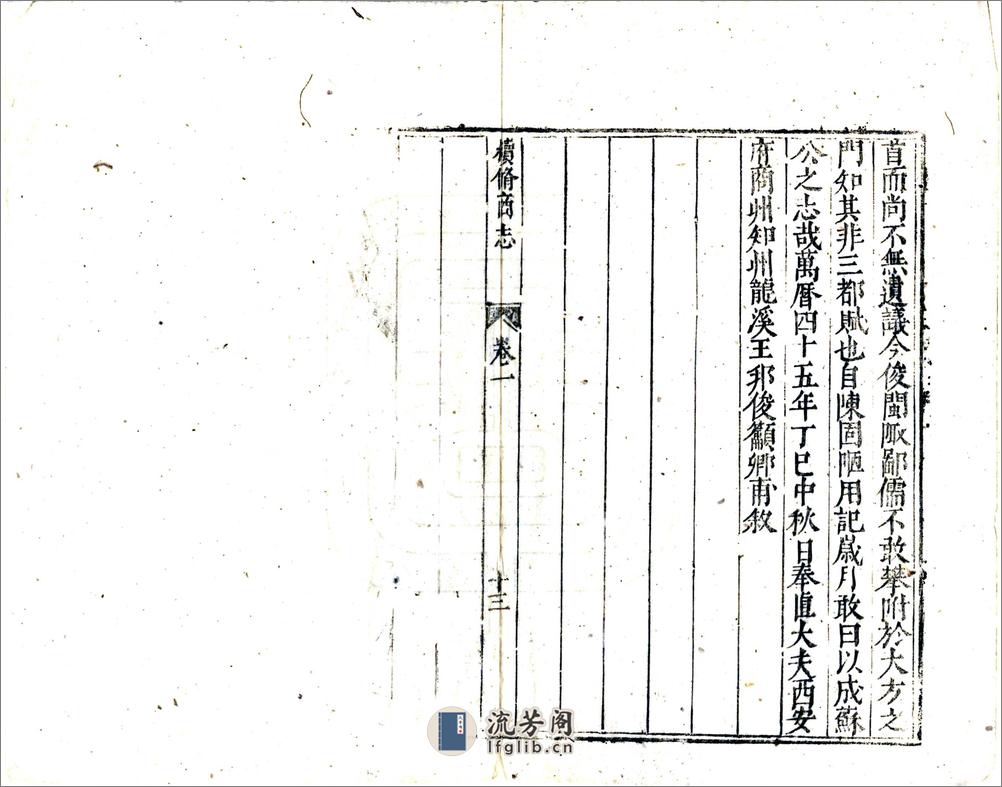 首而尚不無遺議今俊閩陬鄙儒不敢攀附於大方之
門知其非三都賦也自陳固陋用記歲月敢曰以成蘇
公之志哉萬曆四十五年丁巳中秋日奉直大夫西安
府商州知州龍溪王邦俊籲卿甫敘
續脩商志
卷一
十三
流芳阁
lfglib.cn